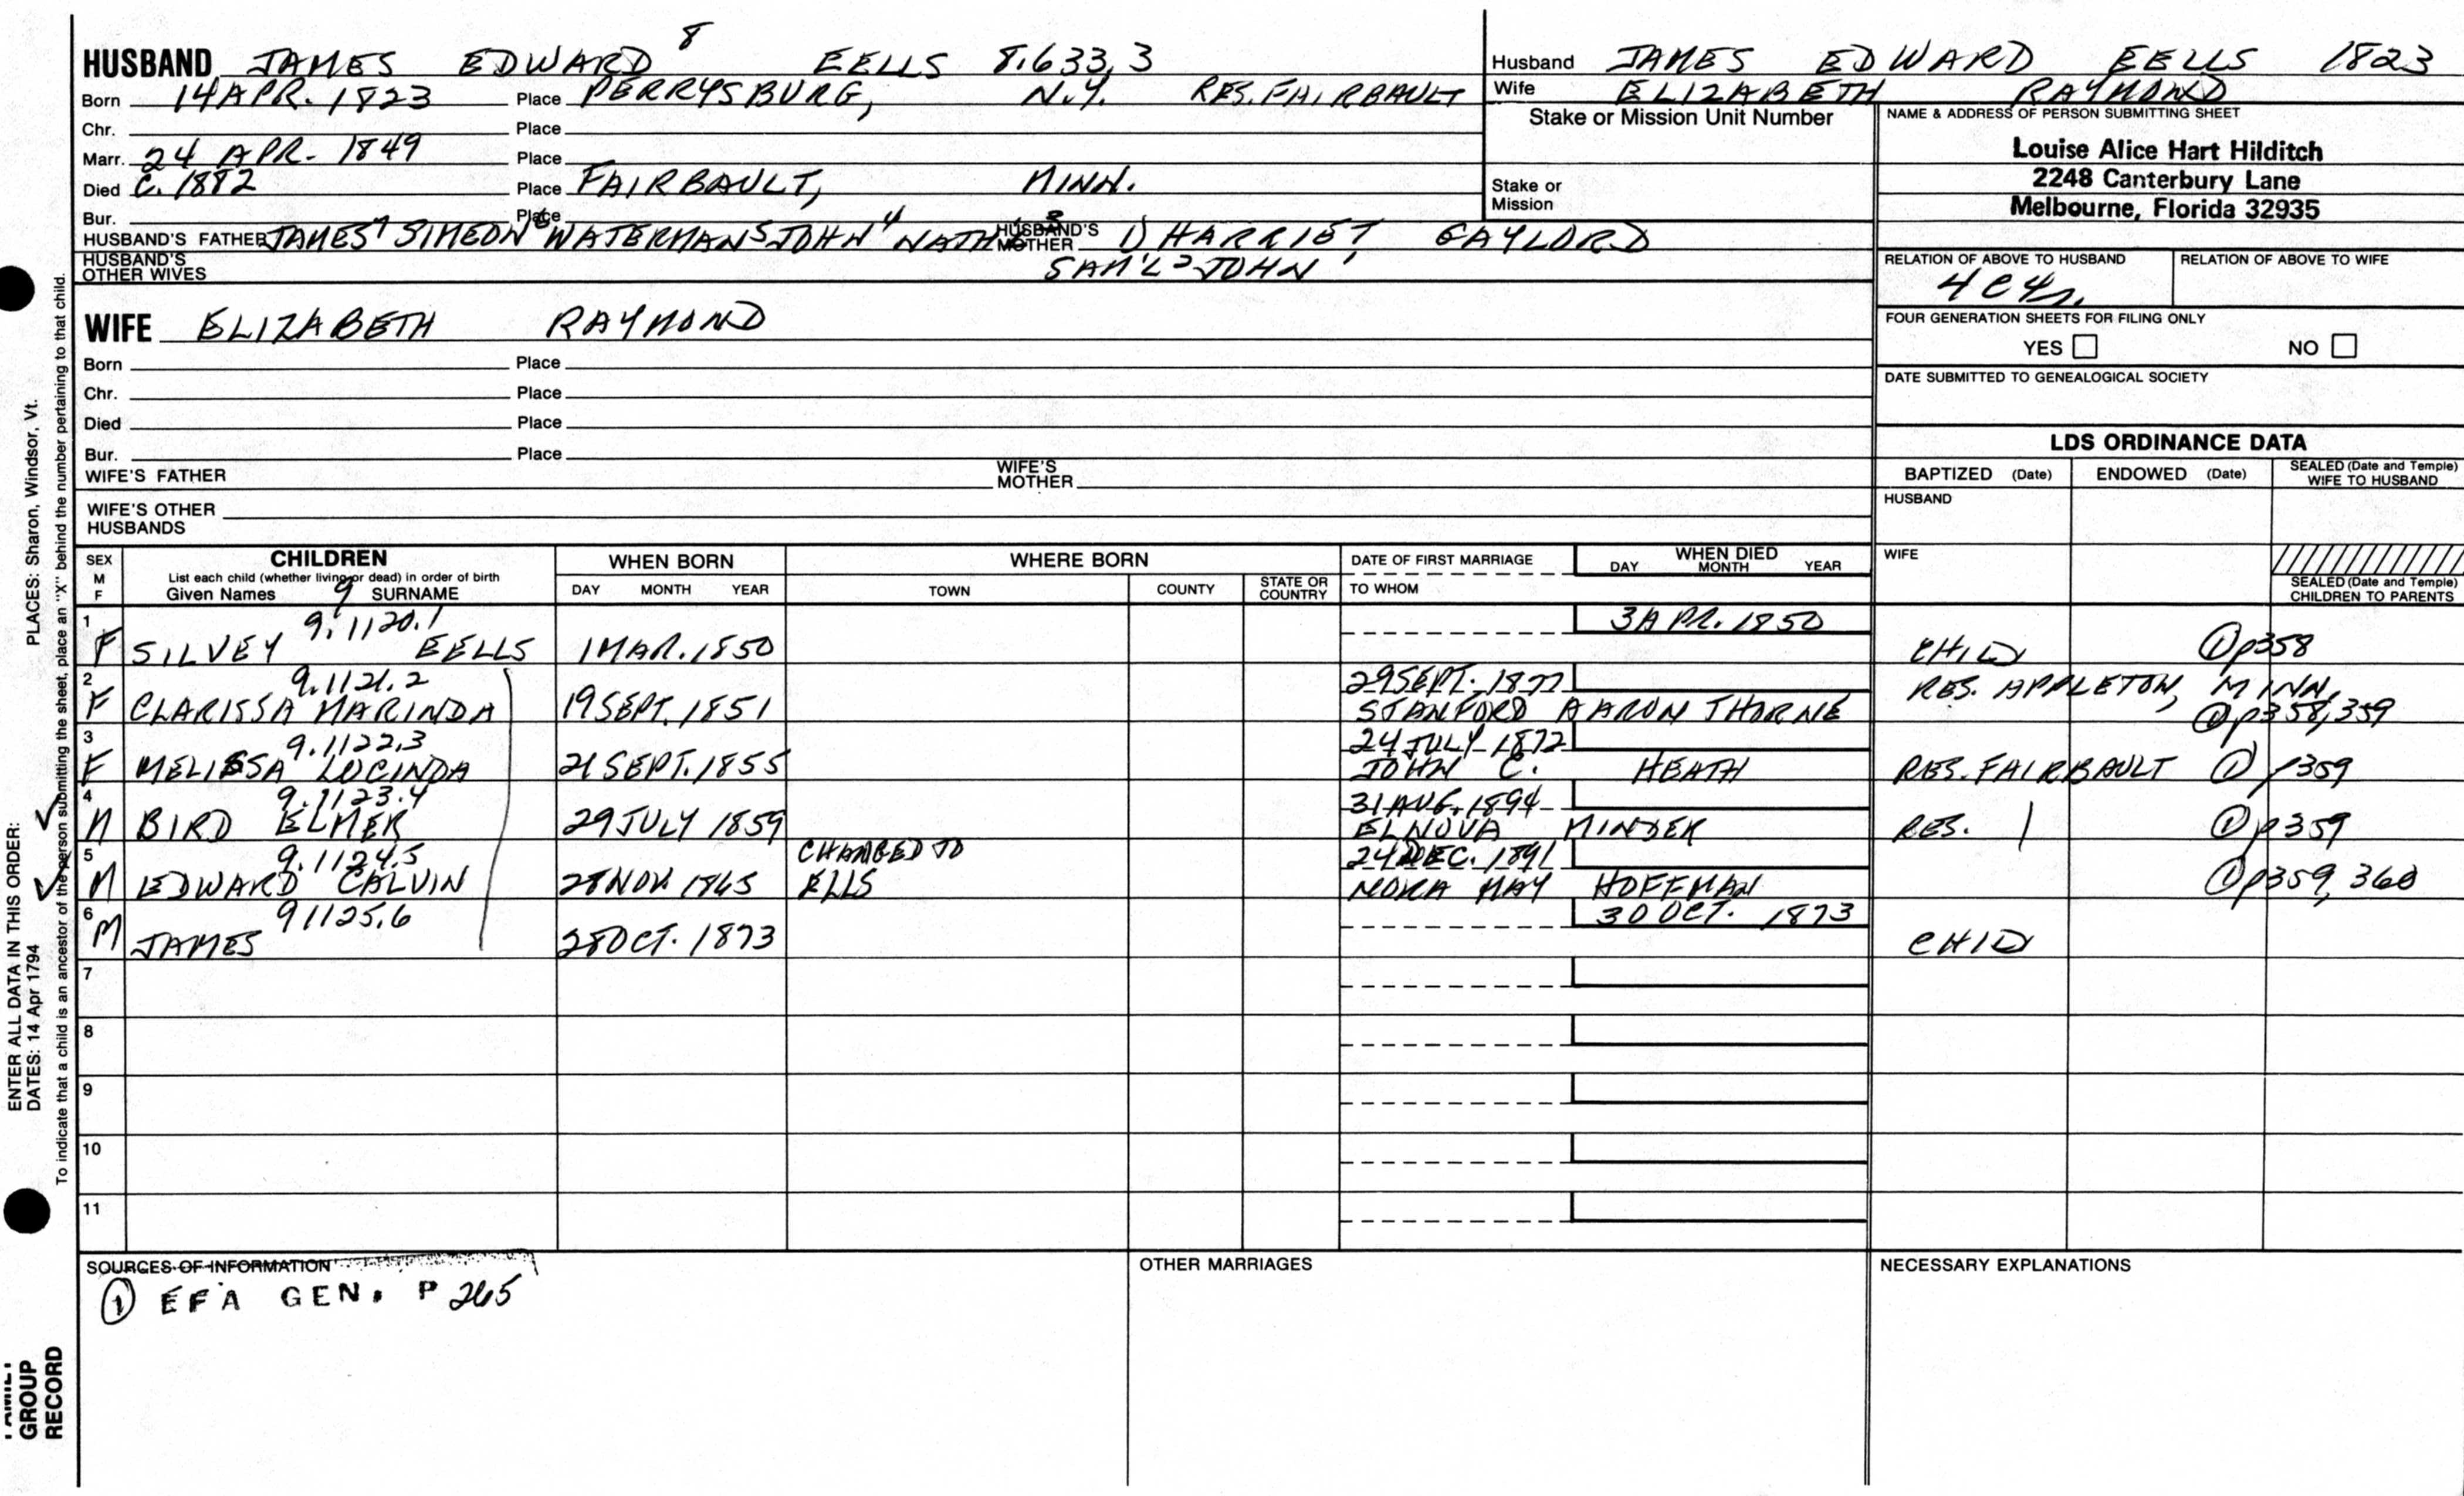 HUSBAND JAMES EDWARD 8 EELLS 8.633.3
Born 14 APR. 1823 Place PERRYSBURG, N.Y. RES. FAIRBAULT
Chr. Place
Marr. 24 APR. 1849 Place
Died C. 1882 Place FAIRBAULT, MINN.
Bur. Place
HUSBAND'S FATHER JAMES 7 SIMEON 6 WATERMAN 5 JOHN 4 NATH 3 HUSBAND'S MOTHER 1) HARRIET GAYLORD
SAM'L 2 JOHN 1
HUSBAND'S OTHER WIVES
Husband JAMES EDWARD EELLS 1823
Wife ELIZABETH RAYMOND
Stake or Mission Unit Number
Stake or Mission
NAME & ADDRESS OF PERSON SUBMITTING SHEET
Louise Alice Hart Hilditch
2248 Canterbury Lane
Melbourne, Florida 32935
RELATION OF ABOVE TO HUSBAND RELATION OF ABOVE TO WIFE
FOUR GENERATION SHEETS FOR FILING ONLY
YES NO
DATE SUBMITTED TO GENEALOGICAL SOCIETY
WIFE ELIZABETH RAYMOND
Born Place
Chr. Place
Died Place
Bur. Place
WIFE'S FATHER WIFE'S MOTHER
WIFE'S OTHER HUSBANDS
LDS ORDINANCE DATA
BAPTIZED (Date) ENDOWED (Date) SEALED (Date and Temple) WIFE TO HUSBAND
HUSBAND
WIFE
SEALED (Date and Temple) CHILDREN TO PARENTS
SEX M F
CHILDREN
List each child (whether living or dead) in order of birth
Given Names 9 SURNAME
WHEN BORN
DAY MONTH YEAR
WHERE BORN
TOWN COUNTY STATE OR COUNTRY
DATE OF FIRST MARRIAGE
TO WHOM
WHEN DIED
DAY MONTH YEAR
1 9.1120.1 3 APR. 1850
F SILVEY EELLS 1 MAR. 1850 CHILD ① p358
2 9.1121.2 29 SEPT. 1877 RES. APPLETON, MINN.
F CLARISSA MARINDA 19 SEPT. 1851 STANFORD AARON THORNE ① p358, 359
3 9.1122.3 24 JULY 1872
F MELISSA LUCINDA 21 SEPT. 1855 JOHN C. HEATH RES. FAIRBAULT ① p359
4 9.1123.4 31 AUG. 1894
M BIRD ELMER 29 JULY 1859 ELNOVA MINSER RES. ① p359
5 9.1124.5 CHANGED TO 24 DEC. 1891
M EDWARD CALVIN 28 NOV. 1865 ELLS NORA MAY HOFFMAN ① p359, 360
6 9.1125.6 30 OCT. 1873
M JAMES 28 OCT. 1873 CHILD
7
8
9
10
11
SOURCES OF INFORMATION
① EFA GEN. P 265
OTHER MARRIAGES
NECESSARY EXPLANATIONS
ENTER ALL DATA IN THIS ORDER:
DATES: 14 Apr 1794 PLACES: Sharon, Windsor, Vt.
To indicate that a child is an ancestor of the person submitting the sheet, place an "X" behind the number pertaining to that child.
GROUP
RECORD